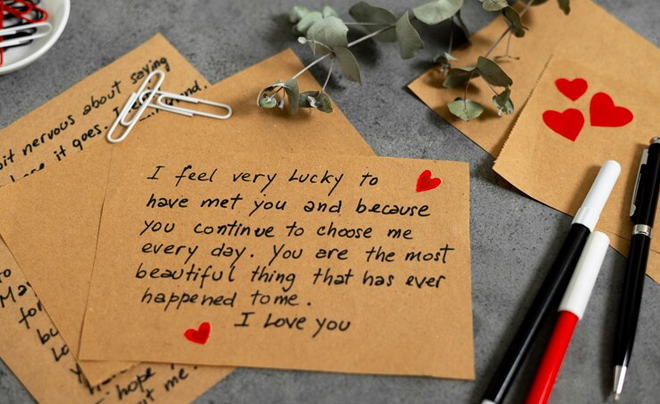 bit nervous about saying
it goes. I
I feel very Lucky to
have met you and because
you continue to choose me
every day. You are the most
beautiful thing that has ever
happened to me.
I Love you
to
for
hope
me.